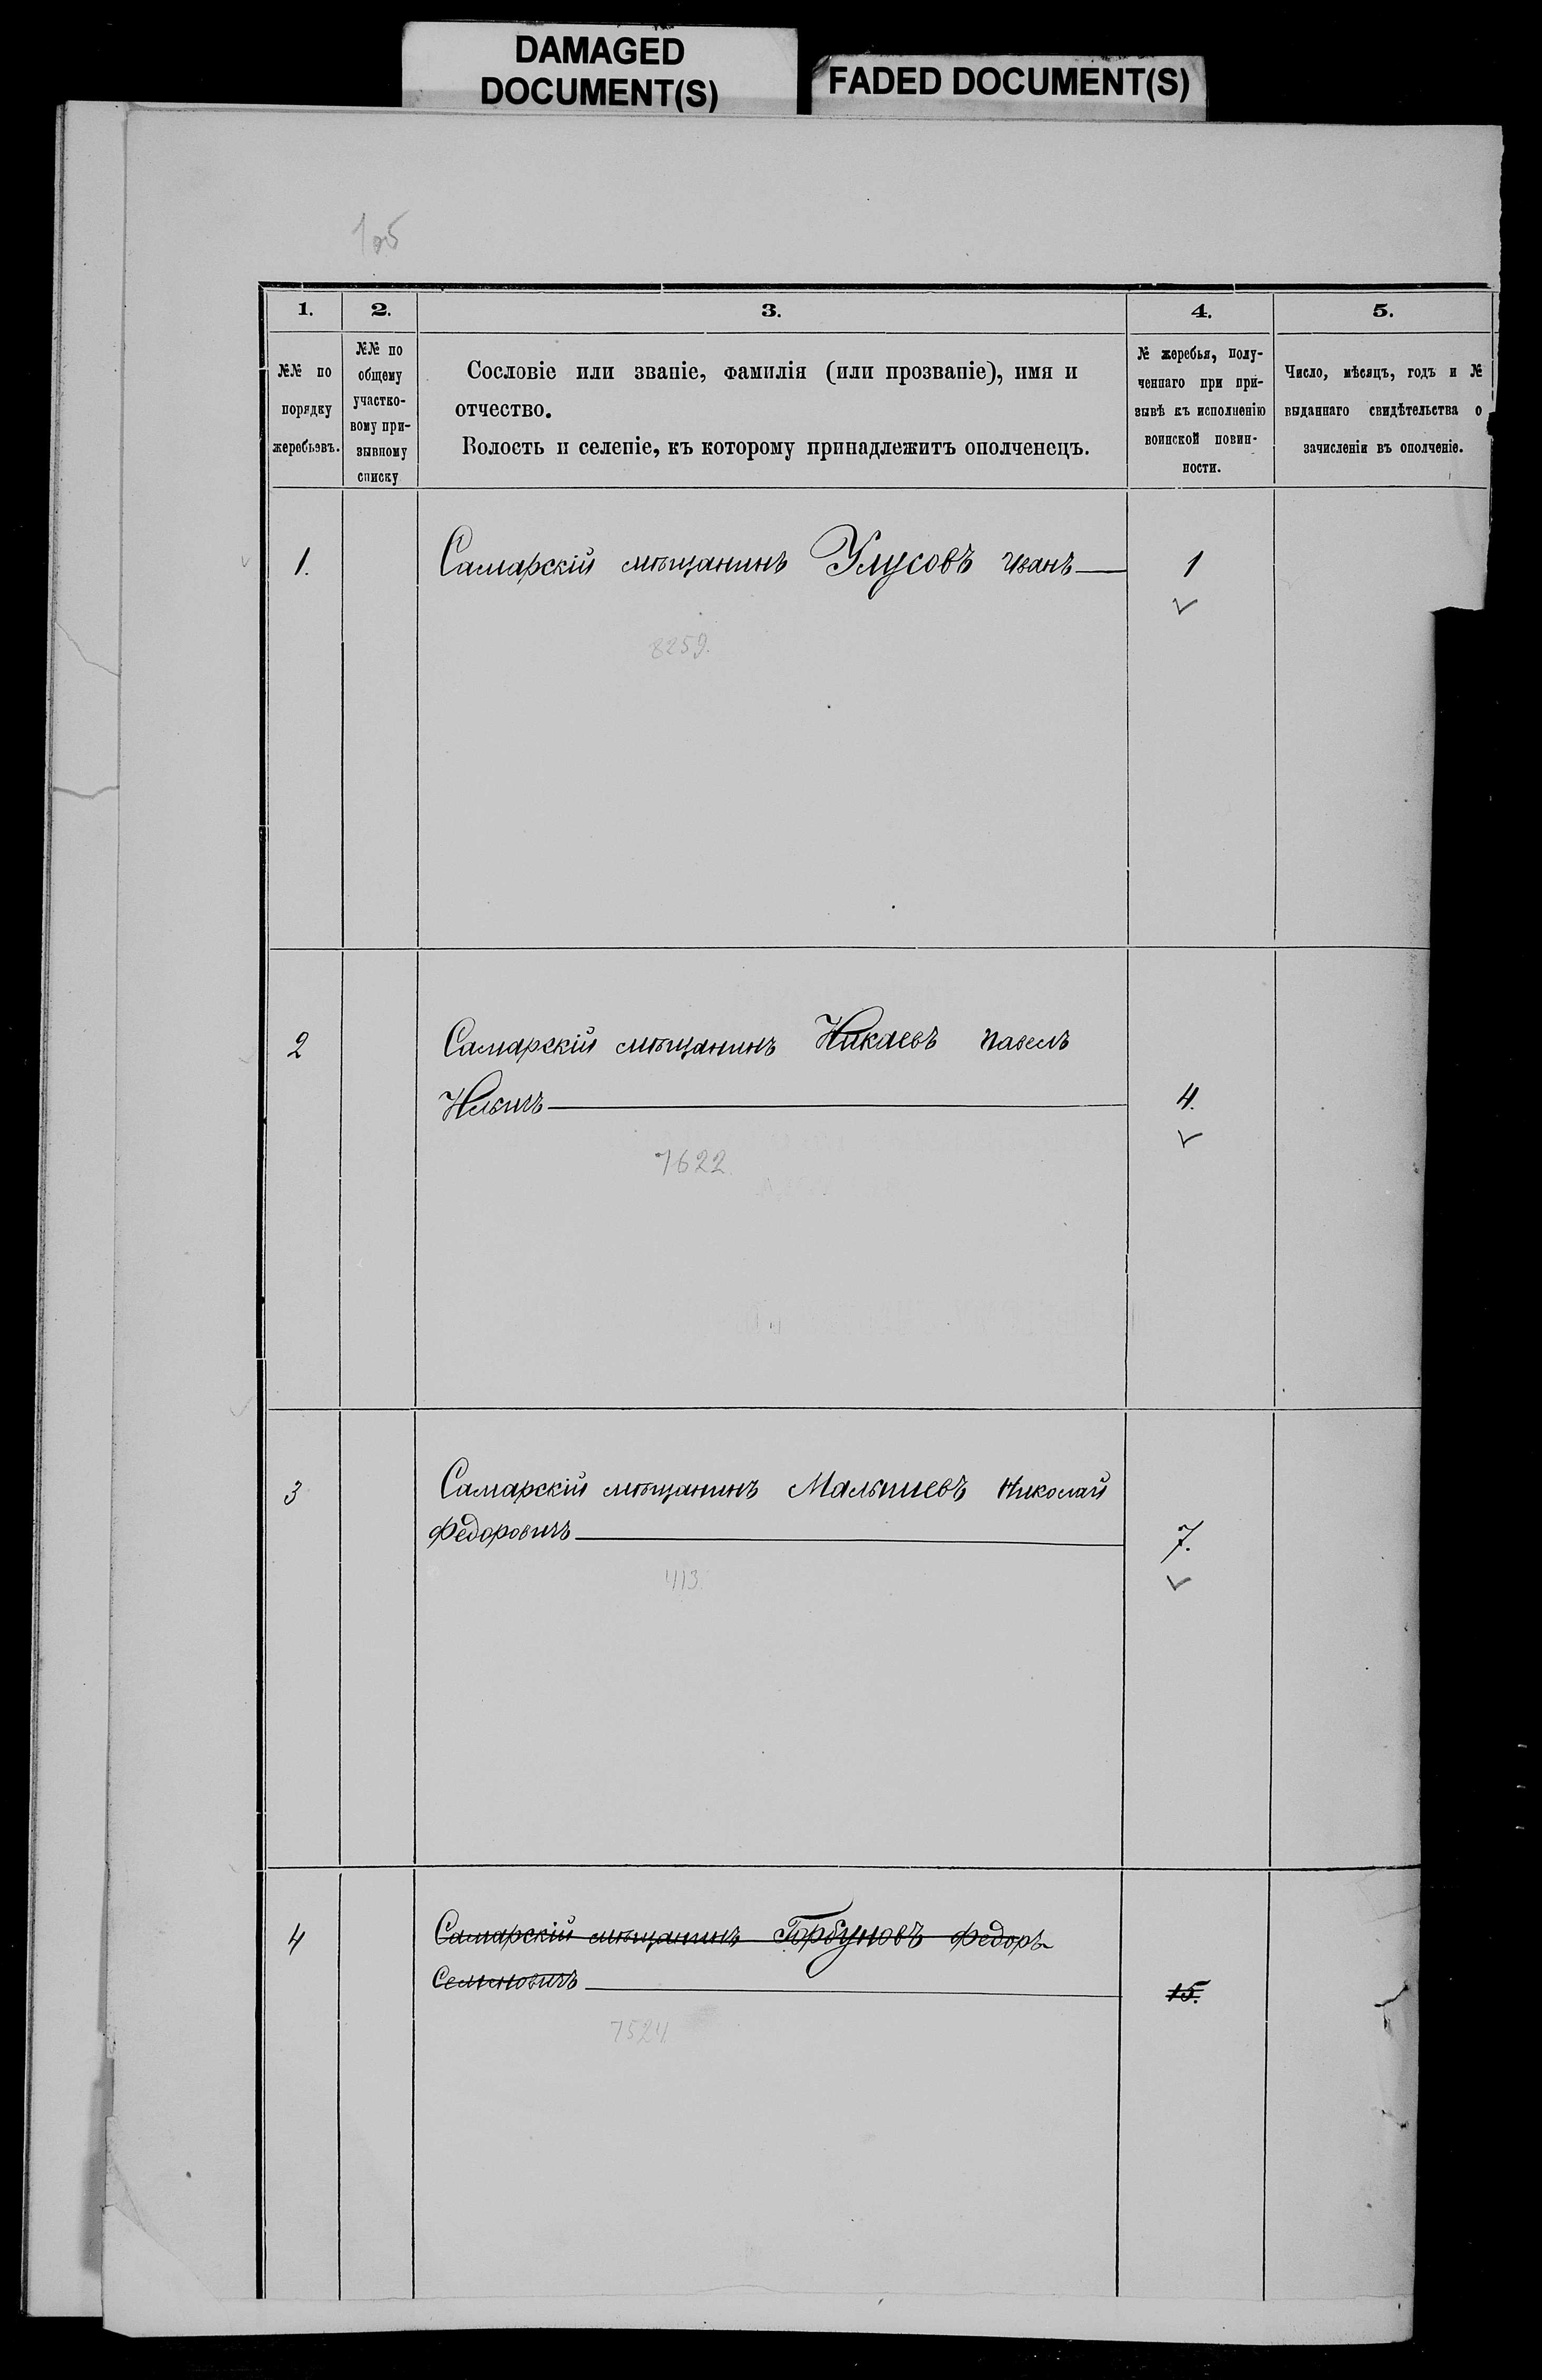 DAMAGED
DOCUMENT(S)
FADED DOCUMENT(S)
1. 2. 3. 4. 5.
№№ по
порядку
жеребьевъ.
№№ по
общему
участко-
вому при-
зывному
списку
Сословіе или званіе, фамилія (или прозваніе), имя и
отчество.
Волость и селеніе, къ которому принадлежитъ ополченецъ.
№ жеребья, полу-
ченнаго при при-
зывѣ къ исполненію
воинской повин-
ности.
Число, мѣсяцъ, годъ и №
выданнаго свидѣтельства о
зачисленіи въ ополченіе.
1. Самарскій мѣщанинъ Улусовъ Иванъ 1
8259.
2 Самарскій мѣщанинъ Никаевъ Павелъ
4.
7622
3 Самарскій мѣщанинъ Малышевъ Николай
Федоровичъ 7.
413.
4 Самарскій мѣщанинъ Горбуновъ Федоръ
Семеновичъ 15.
7524